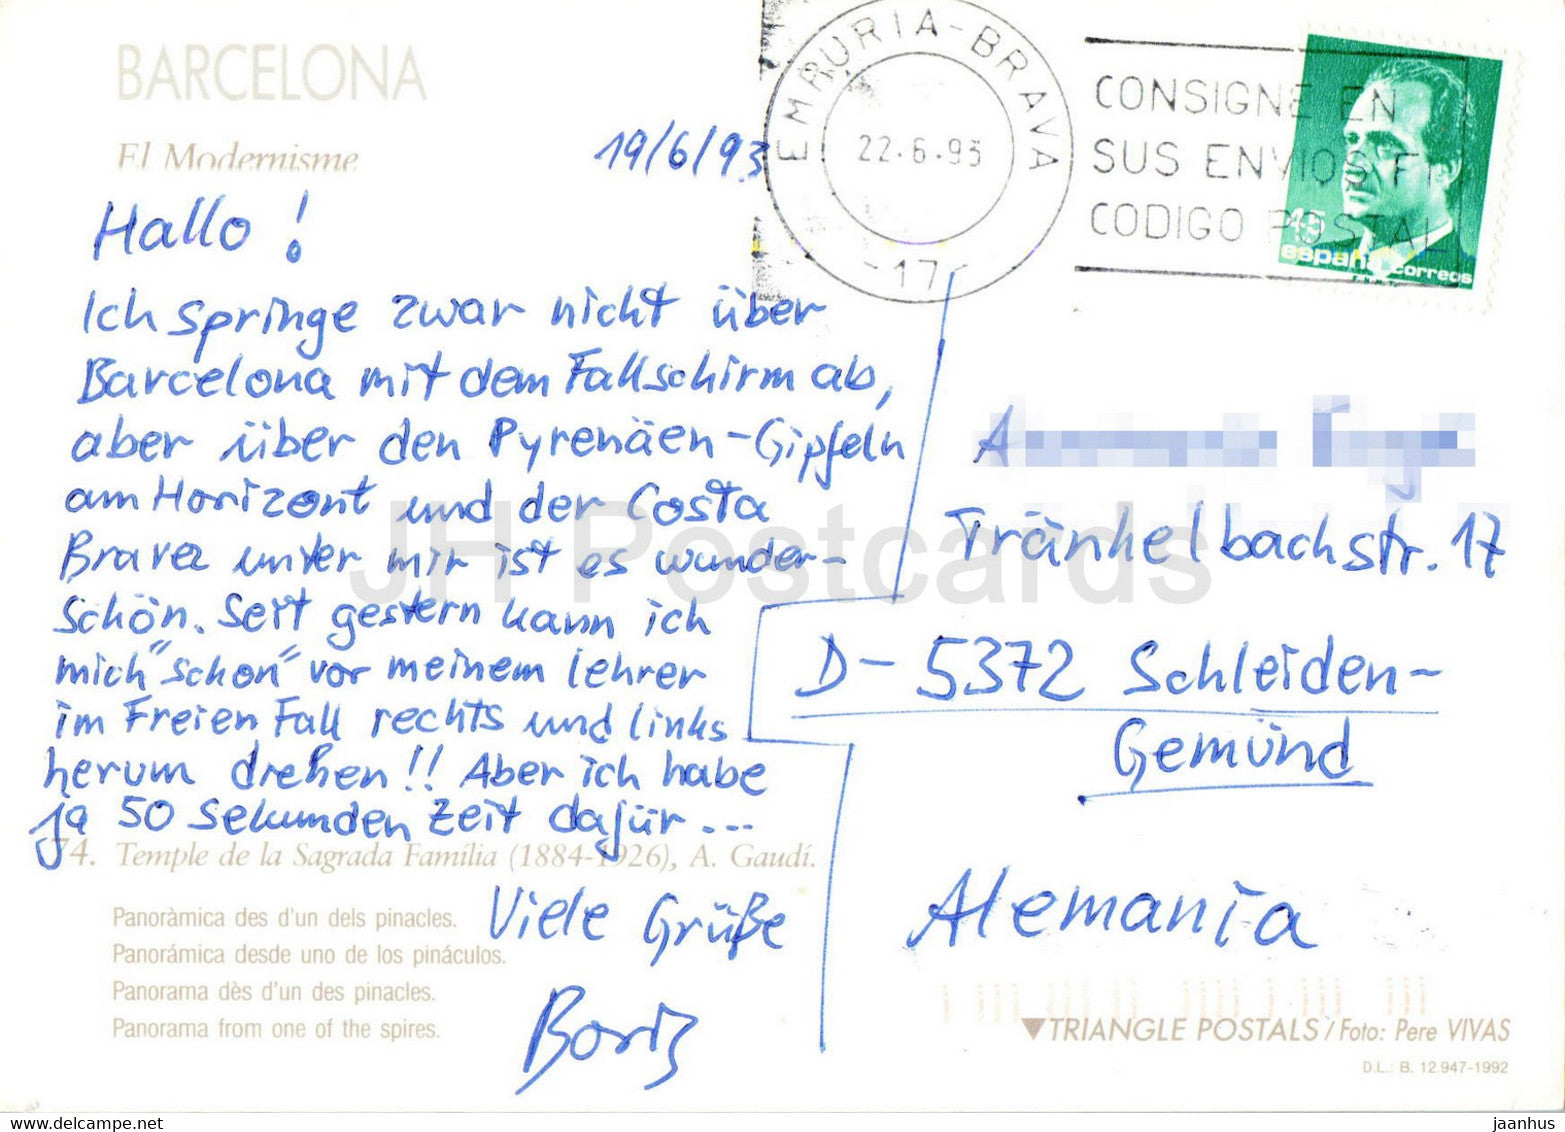 BARCELONA
El Modernisme
19/6/93
Hallo!
Ich springe zwar nicht über
Barcelona mit dem Fallschirm ab,
aber über den Pyrenäen-Gipfeln
am Horizont und der Costa
Brava unter mir ist es wunder-
schön. Seit gestern kann ich
mich "schon" vor meinem Lehrer
im Freien Fall rechts und links
herum drehen!! Aber ich habe
ja 50 Sekunden Zeit dafür...
74. Temple de la Sagrada Família (1884-1926), A. Gaudí.
Viele Grüße
Boris
Panoràmica des d'un dels pinacles.
Panorámica desde uno de los pináculos.
Panorama dès d'un des pinacles.
Panorama from one of the spires.
EMPURIA-BRAVA
22.6.93
-17-
CONSIGNE EN
SUS ENVIOS EL
CODIGO POSTAL
45
españa correos
A
Tränkelbachstr. 17
D-5372 Schleiden-
Gemünd
Alemania
▼TRIANGLE POSTALS / Foto: Pere VIVAS
D.L.: B. 12.947-1992
JH Postcards
www.delcampe.net
jaanhus